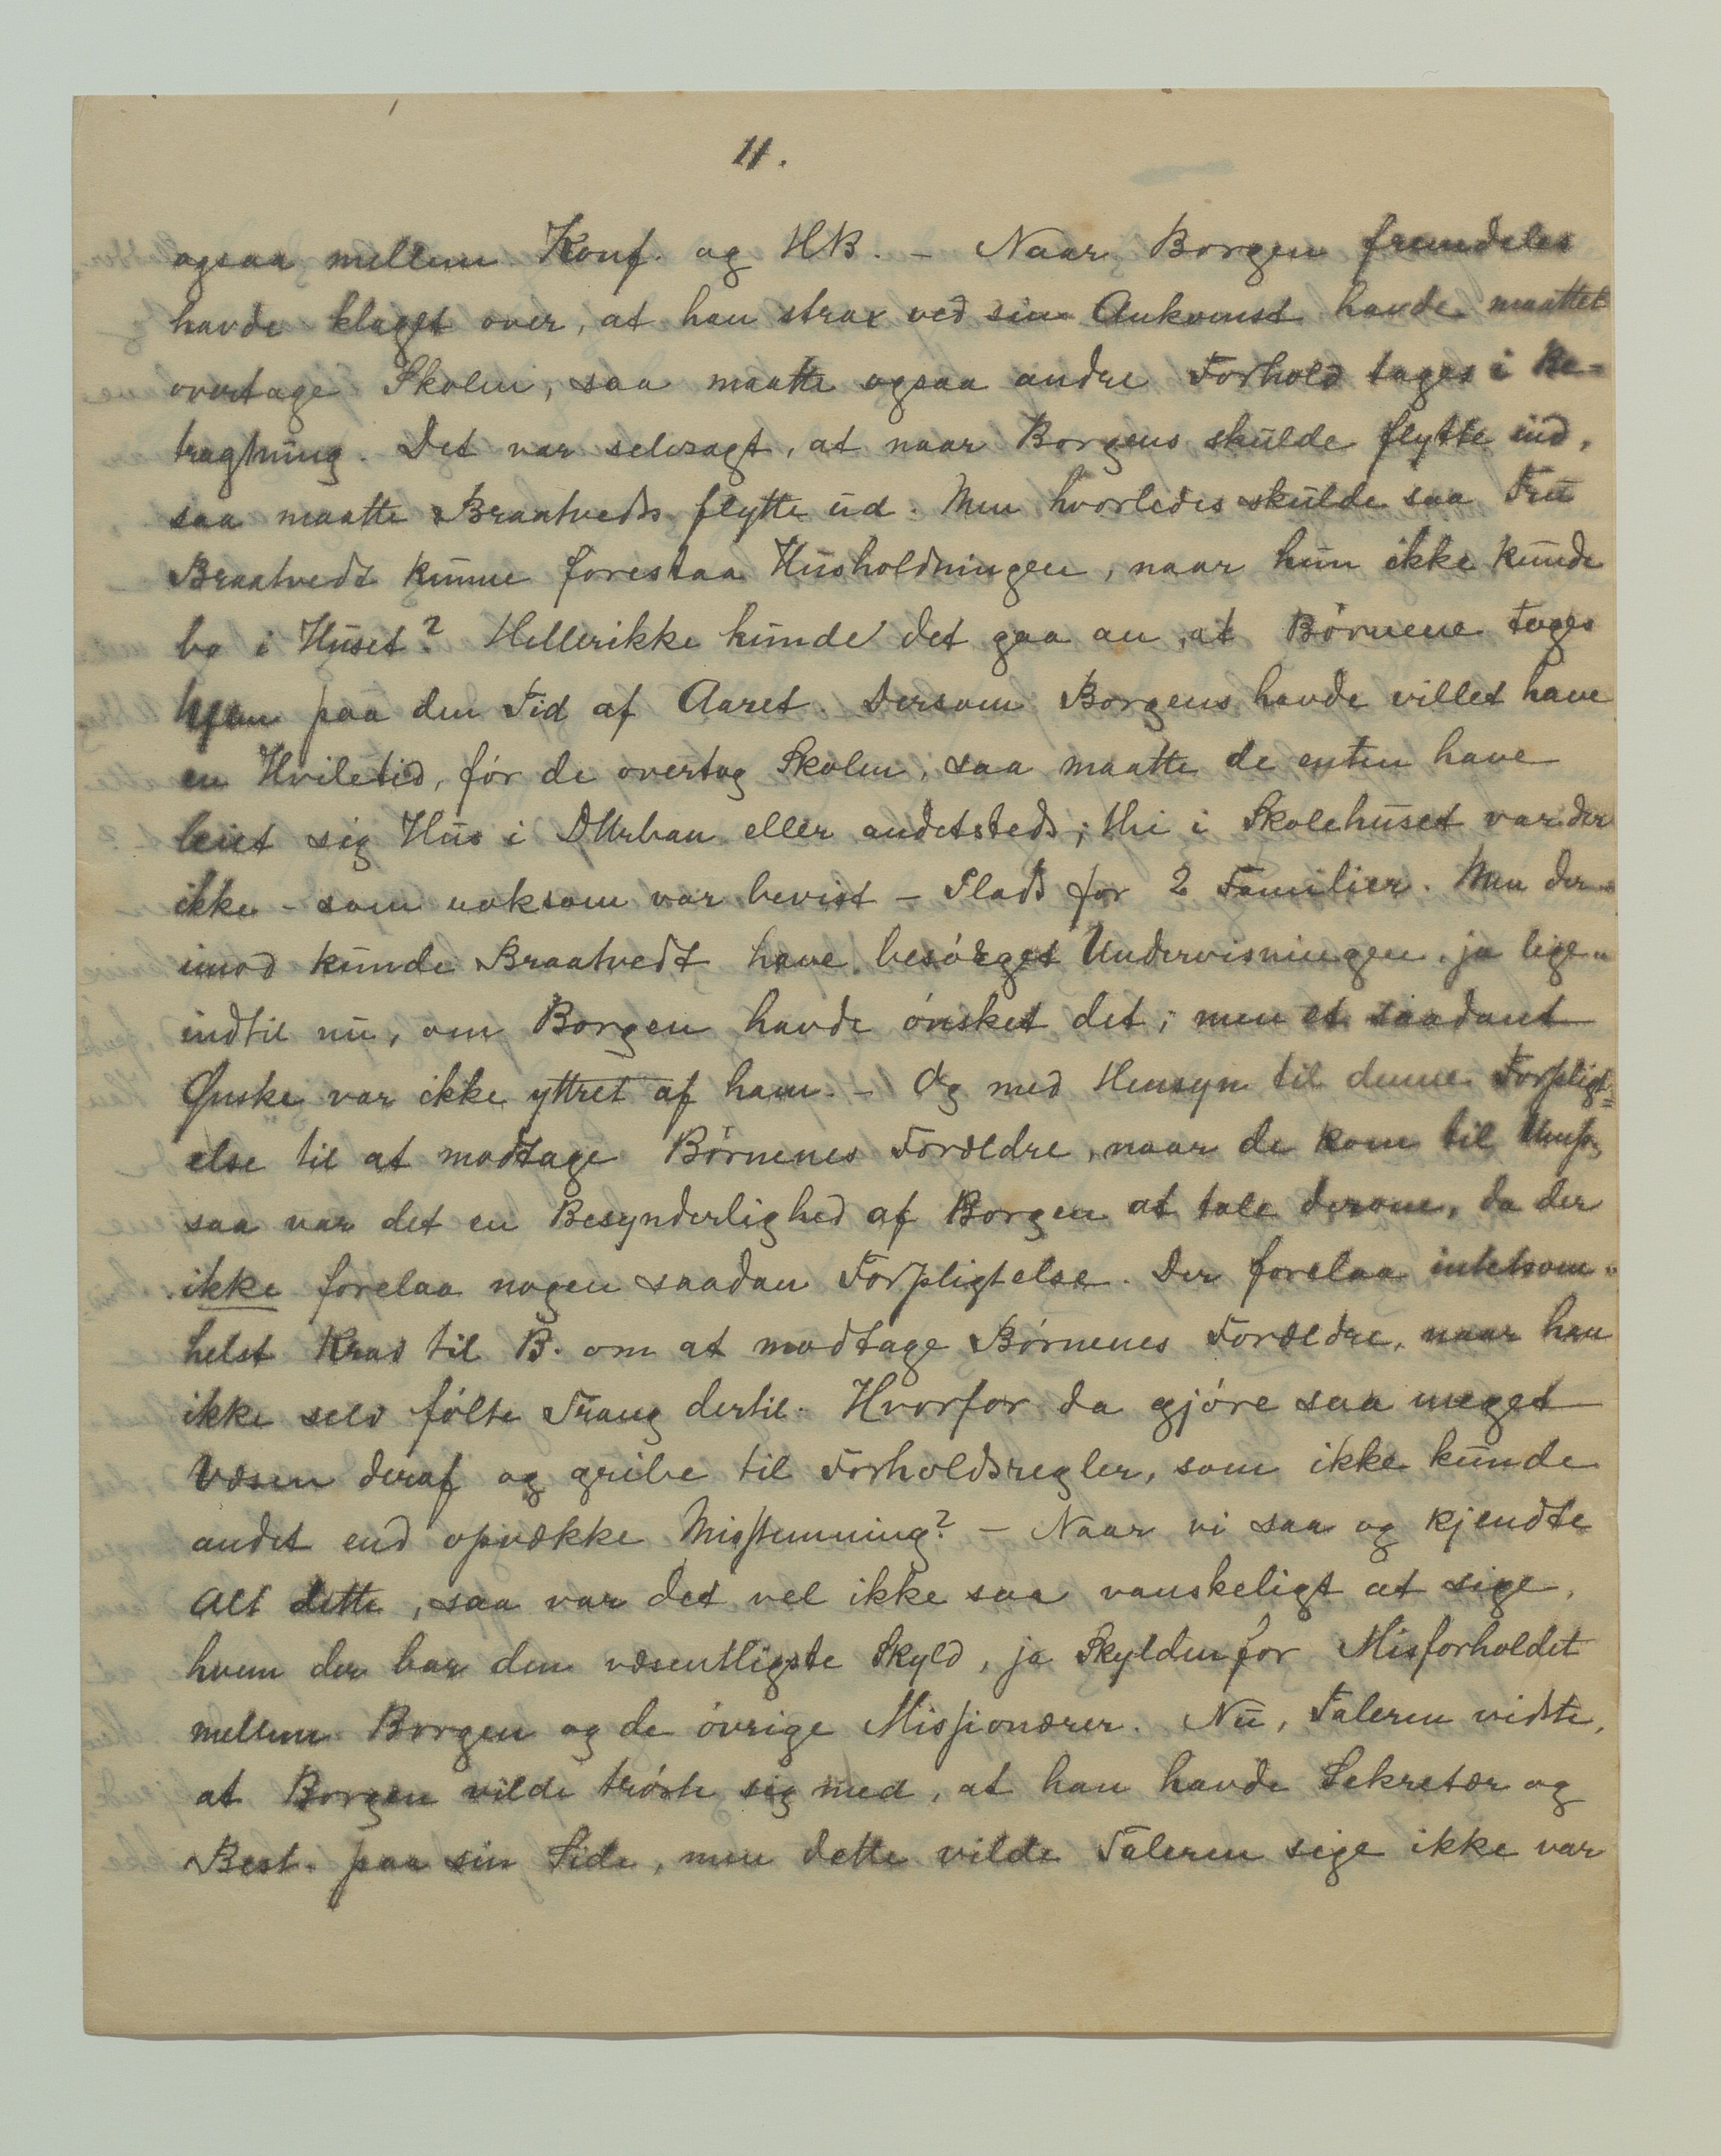 11.
ogsaa mellem Konf. og HB. – Naar Borgen fremdeles
havde klaget over, at han strax ved sin Ankomst havde maattet
overtage Skolen, saa maatte ogsaa andre Forhold tages i Be=
tragtning. Det var selvsagt, at naar Borgens skulde flytte ind,
saa maatte Braatvedts flytte ud. Men hvorledes skulde saa Fru
Braatvedt kunne forestaa Husholdningen, naar hun ikke kunde
bo i Huset? Hellerikke kunde det gaa an, at Børnene toges
hjem paa den Tid af Aaret. Dersom Borgens havde villet have
en Hviletid, før de overtog Skolen, saa maatte de enten have
leiet sig Hus i DUrban eller andetsteds; thi i Skolehuset var der
ikke – som noksom var bevist – Plads for 2 Familier. Men der=
imod kunde Braatvedt have besørget Undervisningen, ja lige=
indtil nu, om Borgen havde ønsket det; men et saadant
Ønske var ikke yttret af ham. – Og med Hensyn til denne Forpligt=
else til at modtage Børnenes Forældre, naar de kom til
saa var det en Besynderlighed af Borgen at tale derom, da der
ikke forelaa nogen saadan Forpligtelse. Der forelaa intetsom=
helst Krav til B. om at modtage Børnenes Forældre, naar han
ikke selv følte Trang dertil. Hvorfor da gjøre saa meget
Væsen deraf og gribe til Forholdsregler, som ikke kunde
andet end opvække Misstemning? – Naar vi saa og kjendte
Alt dette, saa var det vel ikke saa vanskeligt at sige,
hvem der bar den væsentligste Skyld, ja Skylden for Misforholdet
mellem Borgen og de øvrige Missionærer. Nu, Taleren vidste,
at Borgen vilde trøste sig med, at han havde Sekretær og
Best. paa sin Side, men dette vilde Taleren sige ikke var